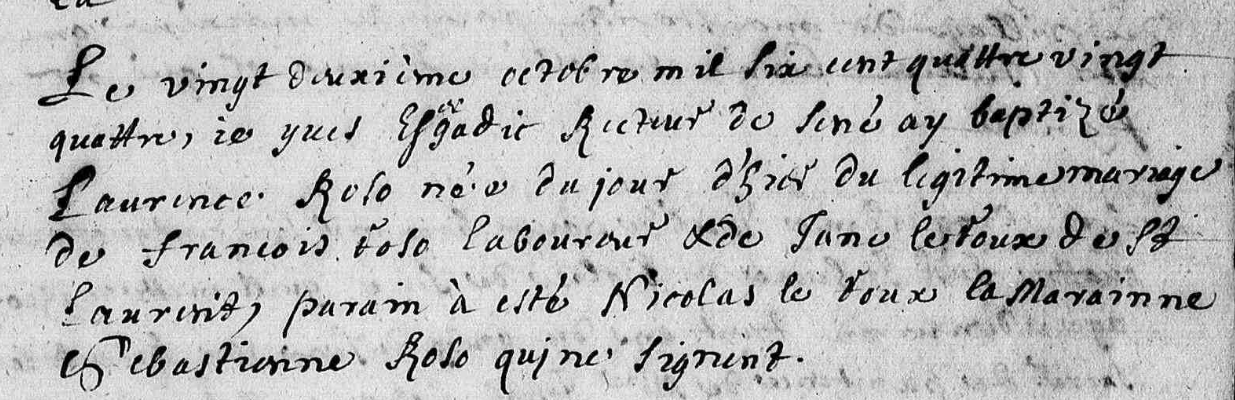 Le vingt deuxième octobre mil six cent quattre vingt
quattre, ie yues Esgadic Recteur de sené ay baptizé
Laurence Roso née du jour d'hier du legitime mariage
de francois roso laboureur & de Jane le roux de St
Laurent, parain à esté Nicolas le roux la Marainne
Sebastienne Roso qui ne signent.